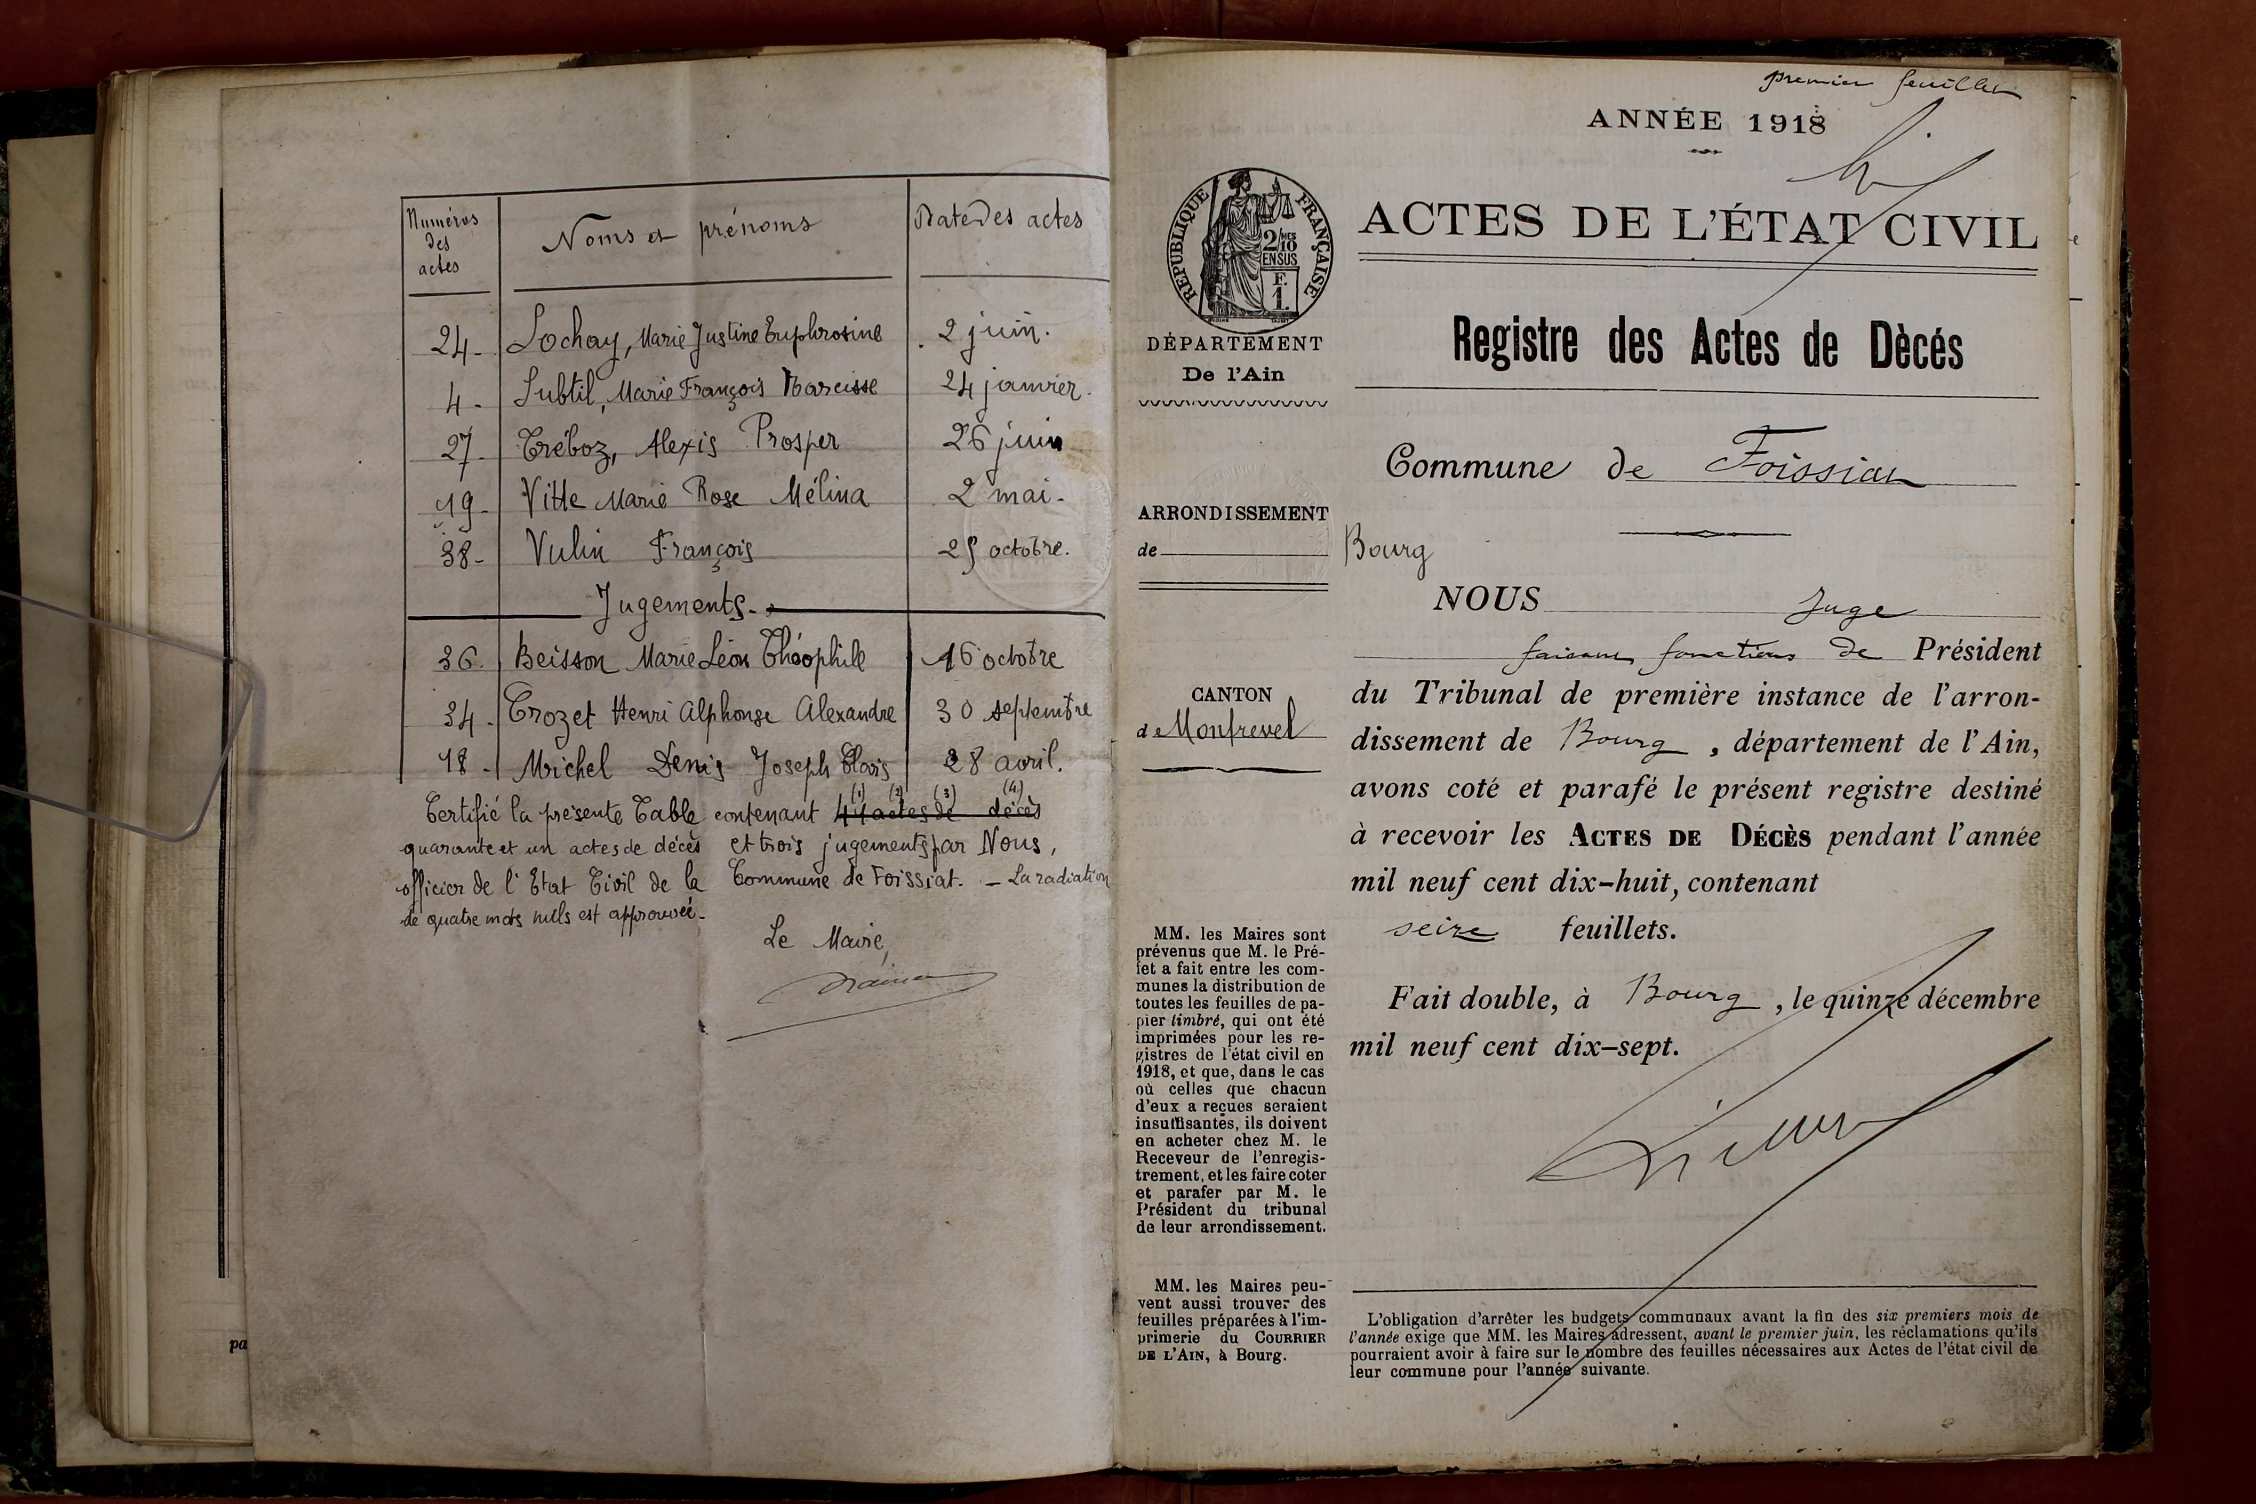 Numéros des actes
Noms et prénoms
Date des actes
24 - Lochay, Marie Justine Euphrosine 2 juin.
4 - Subtil, Marie François Narcisse 24 janvier.
27 - Tréboz, Alexis Prosper 26 juin
19 - Vitte Marie Rose Mélina 2 mai -
38 - Vulin François 25 octobre.
Jugements -
36. Beisson Marie Léon Théophile 16 octobre
34 - Crozet Henri Alphonse Alexandre 30 septembre
18 - Michel Denis Joseph 28 avril.
(1) (2) (3) (4)
Certifié la présente Table contenant 41 actes de décès
quarante et un actes de décès et trois jugements par Nous,
officier de l'Etat Civil de la Commune de Foissiat. - La radiation
de quatre mots nuls est approuvée -
Le Maire,
pa
premier feuillet
ANNÉE 1918
RÉPUBLIQUE FRANÇAISE
2/10 MES
EN SUS
F.
1.
ACTES DE L'ÉTAT CIVIL
Registre des Actes de Dècés
DÉPARTEMENT
De l'Ain
Commune de Foissiat
ARRONDISSEMENT
de Bourg
NOUS Juge
faisant fonctions de Président
CANTON
de Montrevel
du Tribunal de première instance de l'arron-
dissement de Bourg, département de l'Ain,
avons coté et parafé le présent registre destiné
à recevoir les ACTES DE DÉCÈS pendant l'année
mil neuf cent dix-huit, contenant
seize feuillets.
Fait double, à Bourg, le quinze décembre
mil neuf cent dix-sept.
MM. les Maires sont
prévenus que M. le Pré-
fet a fait entre les com-
munes la distribution de
toutes les feuilles de pa-
pier timbré, qui ont été
imprimées pour les re-
gistres de l'état civil en
1918, et que, dans le cas
où celles que chacun
d'eux a reçues seraient
insuffisantes, ils doivent
en acheter chez M. le
Receveur de l'enregis-
trement, et les faire coter
et parafer par M. le
Président du tribunal
de leur arrondissement.
MM. les Maires peu-
vent aussi trouver des
feuilles préparées à l'im-
primerie du COURRIER
DE L'AIN, à Bourg.
L'obligation d'arrêter les budgets communaux avant la fin des six premiers mois de
l'année exige que MM. les Maires adressent, avant le premier juin, les réclamations qu'ils
pourraient avoir à faire sur le nombre des feuilles nécessaires aux Actes de l'état civil de
leur commune pour l'année suivante.